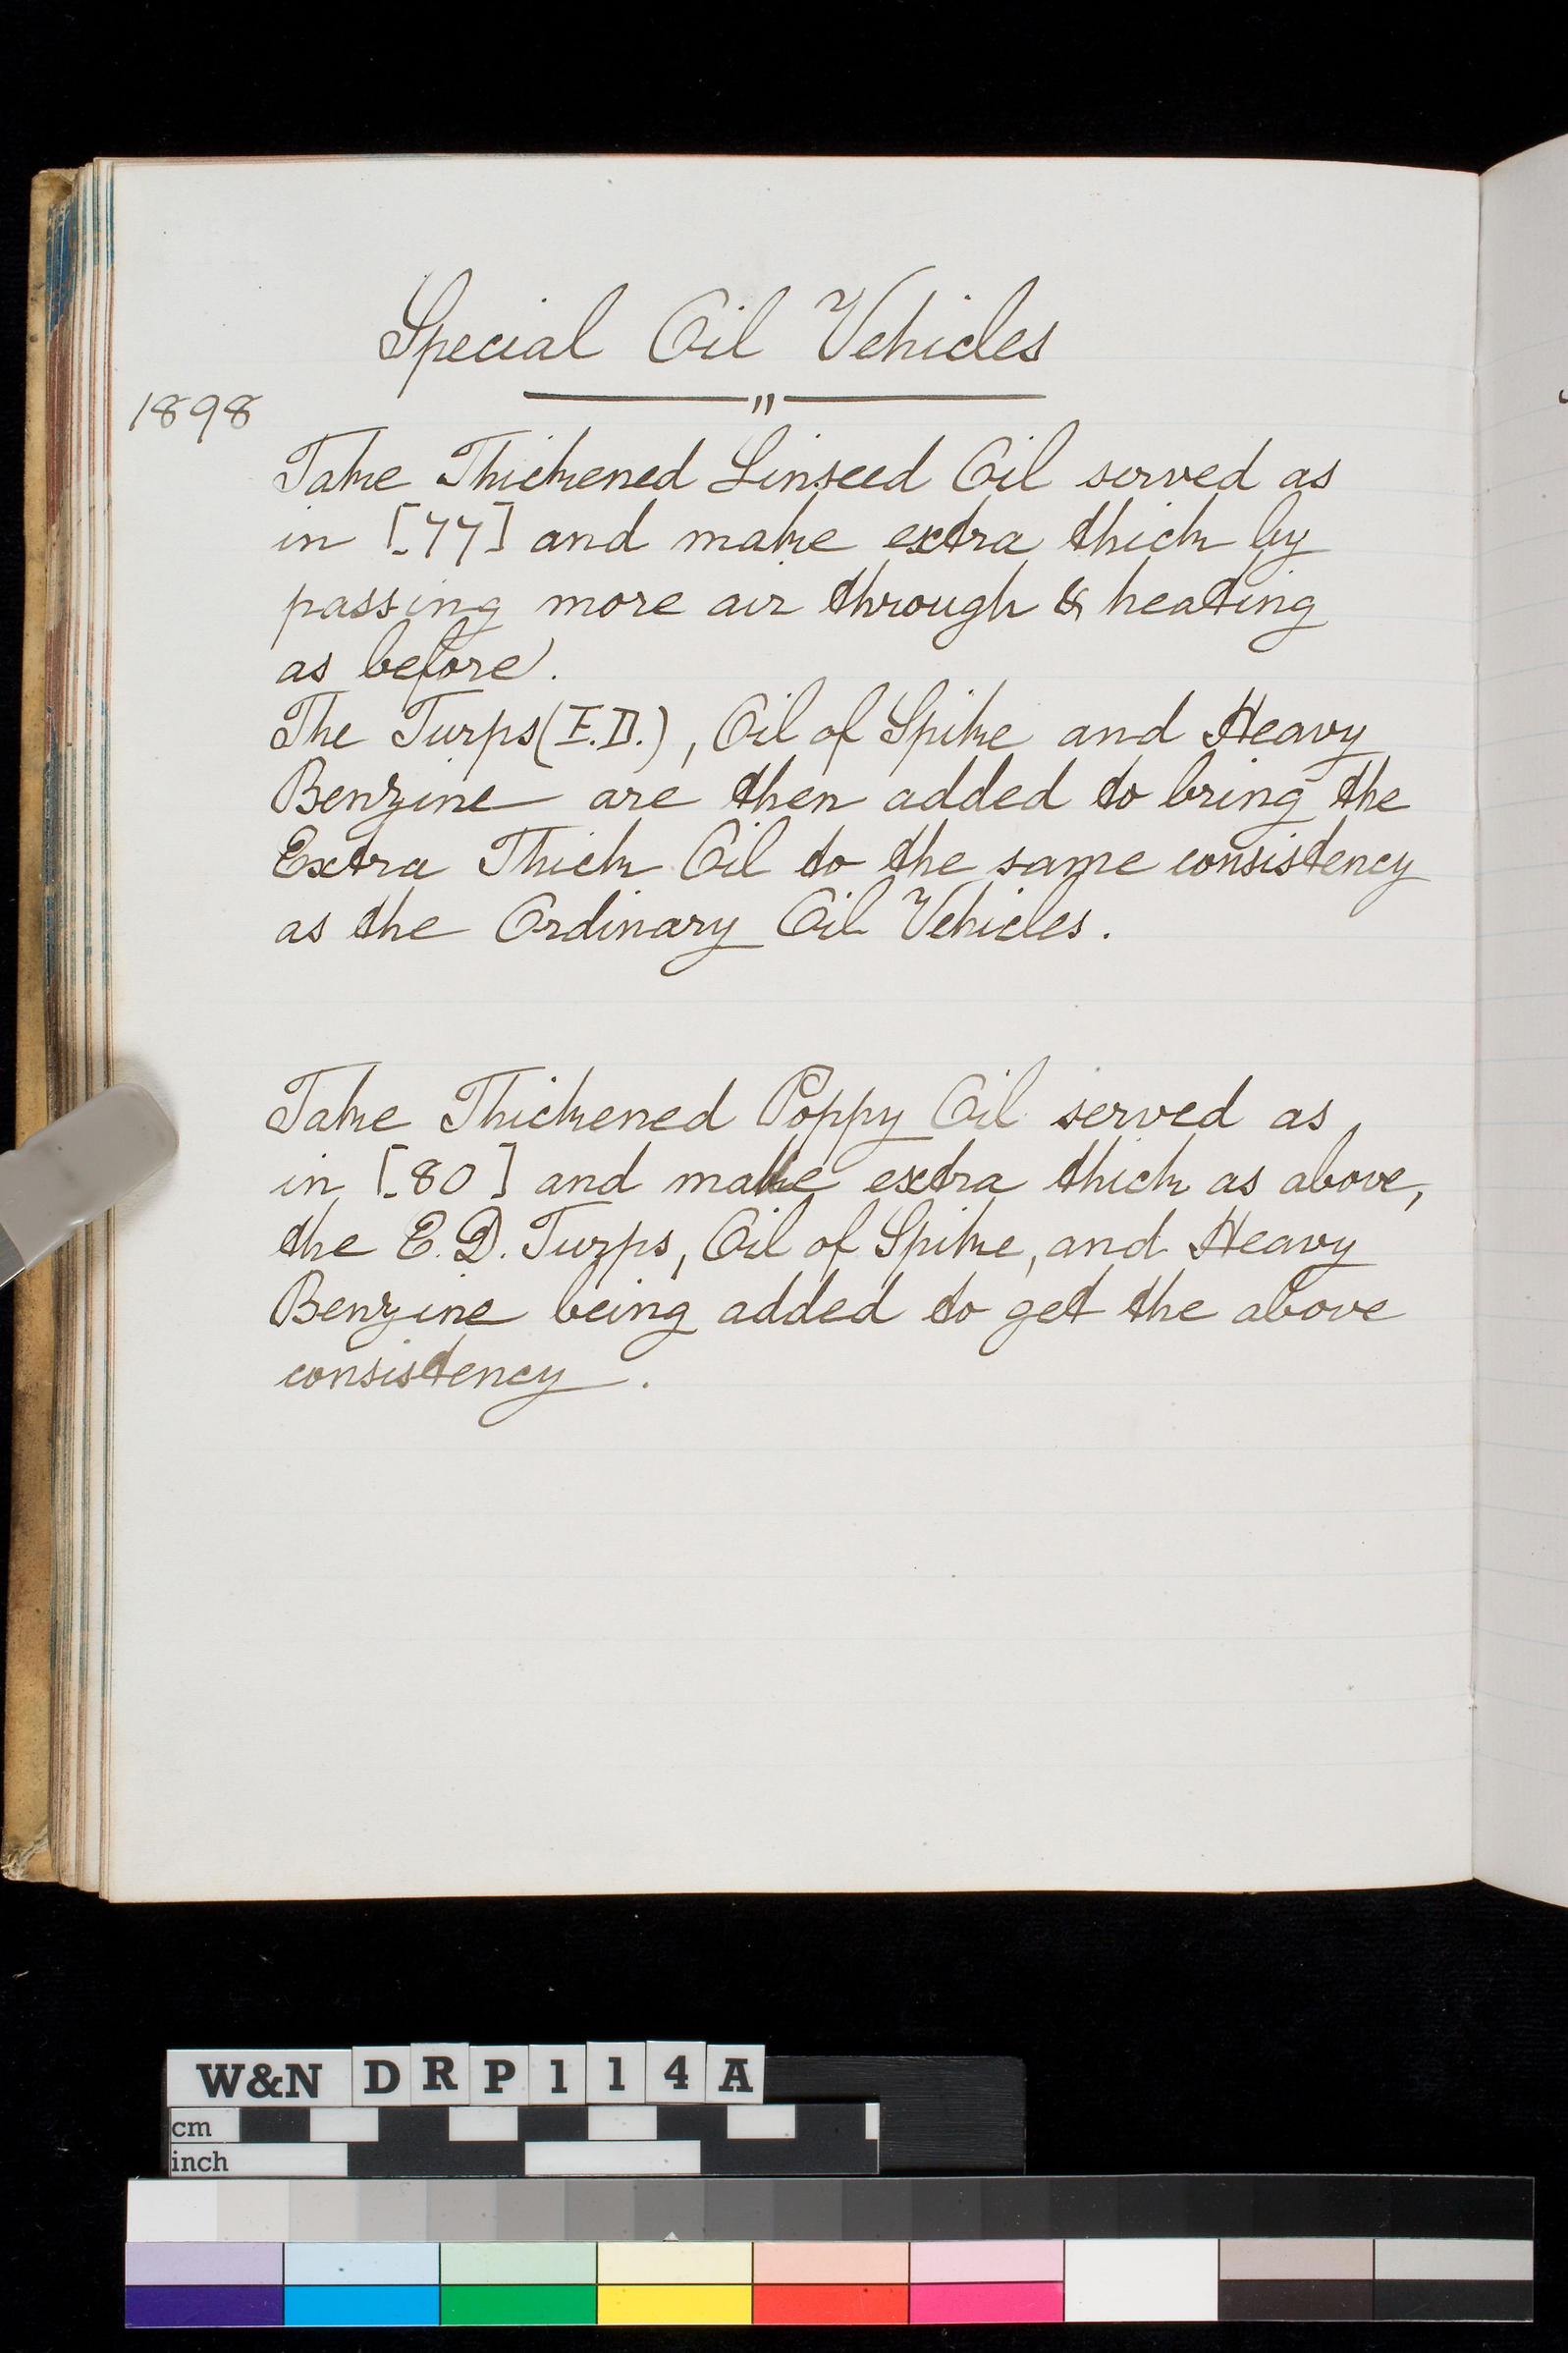 Special Oil Vehicles
"
1898
Take Thickened Linseed Oil served as
in [77] and make extra thick by
passing more air through & heating
as before.
The Turps (E.D.), Oil of Spike and Heavy
Benzine are then added to bring the
Extra Thick Oil to the same consistency
as the Ordinary Oil Vehicles.
Take Thickened Poppy Oil served as
in [80] and make extra thick as above,
the E.D. Turps, Oil of Spike, and Heavy
Benzine being added to get the above
consistency.
W&N DRP114A
cm
inch